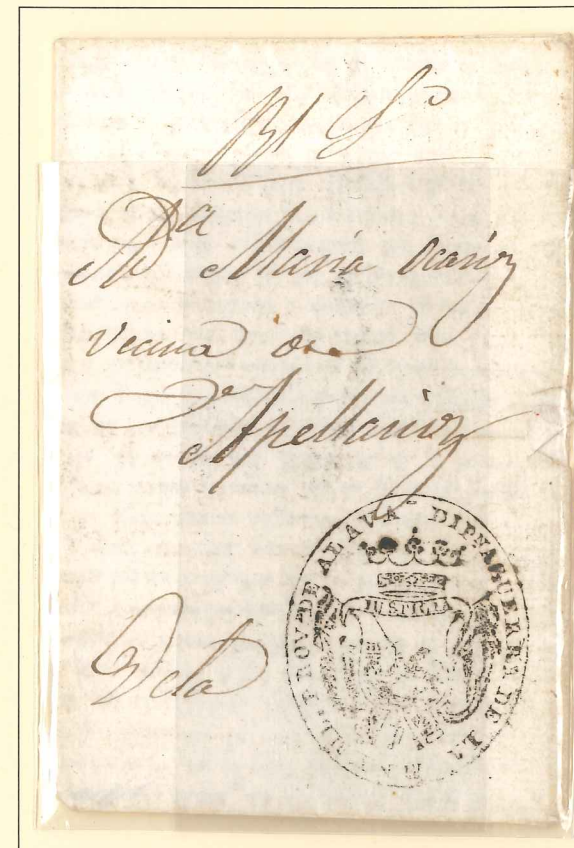 Rl So
A Da Maria Ocariz
vecina de
Apellaniz
DIPN A GUERRA DE LA M. N. M. L. PROV. DE ALAVA
JUSTICIA